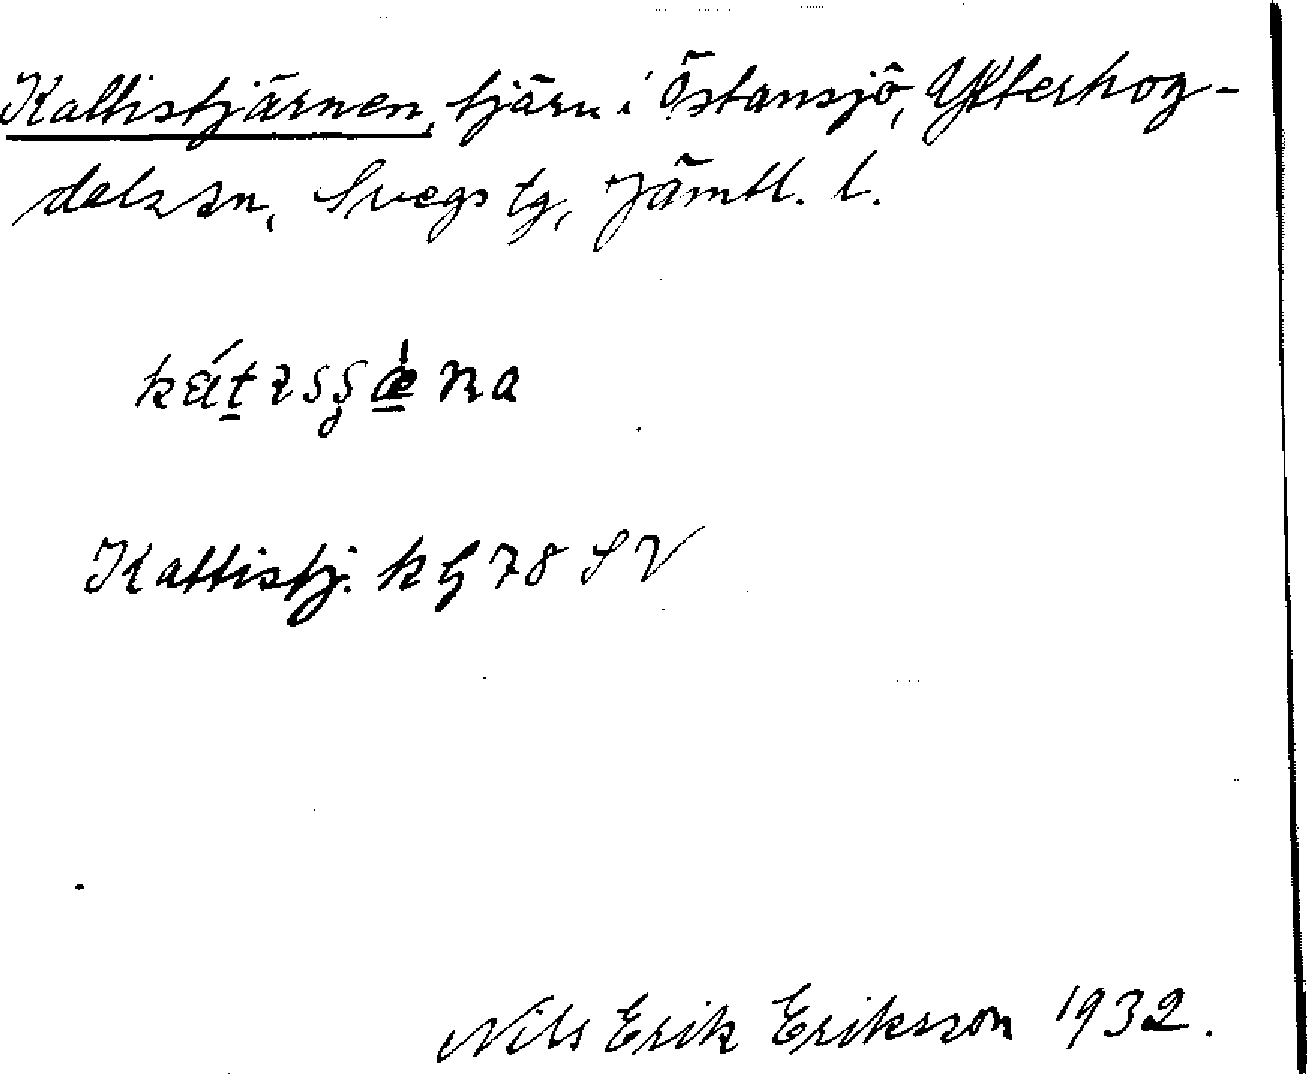 Kattistjärnen, tjärn i Östansjö, Ytterhog-
dals sn, Svegs tg, Jämtl. l.
Kattistj. k G 78 SV
Nils Erik Eriksson 1932.